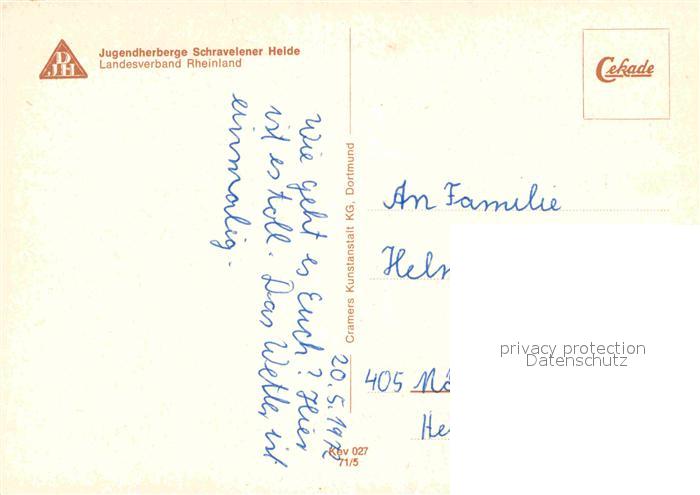 DJH
Jugendherberge Schravelener Heide
Landesverband Rheinland
Cekade
20.5.197
Wie geht es Euch? Hier
ist es toll. Das Wetter ist
einmalig.
Cramers Kunstanstalt KG, Dortmund
Kev 027
71/5
An Familie
Heln
405
privacy protection
Datenschutz